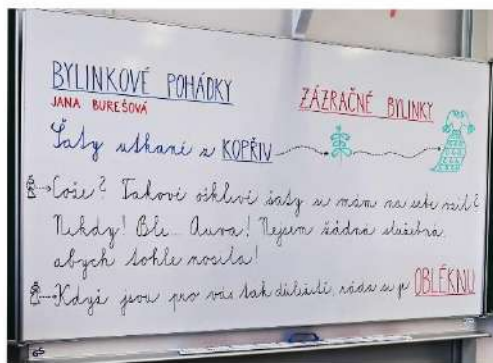 BYLINKOVÉ POHÁDKY
JANA BUREŠOVÁ
ZÁZRAČNÉ BYLINKY
Šaty utkané z KOPŘIV
Cože? Takové ošklivé šaty si mám na sebe vzít?
Nikdy! Ble... Auva! Nejsem žádná služebná,
abych tohle nosila!
Když jsou pro vás tak důležití, ráda si je OBLÉKNU